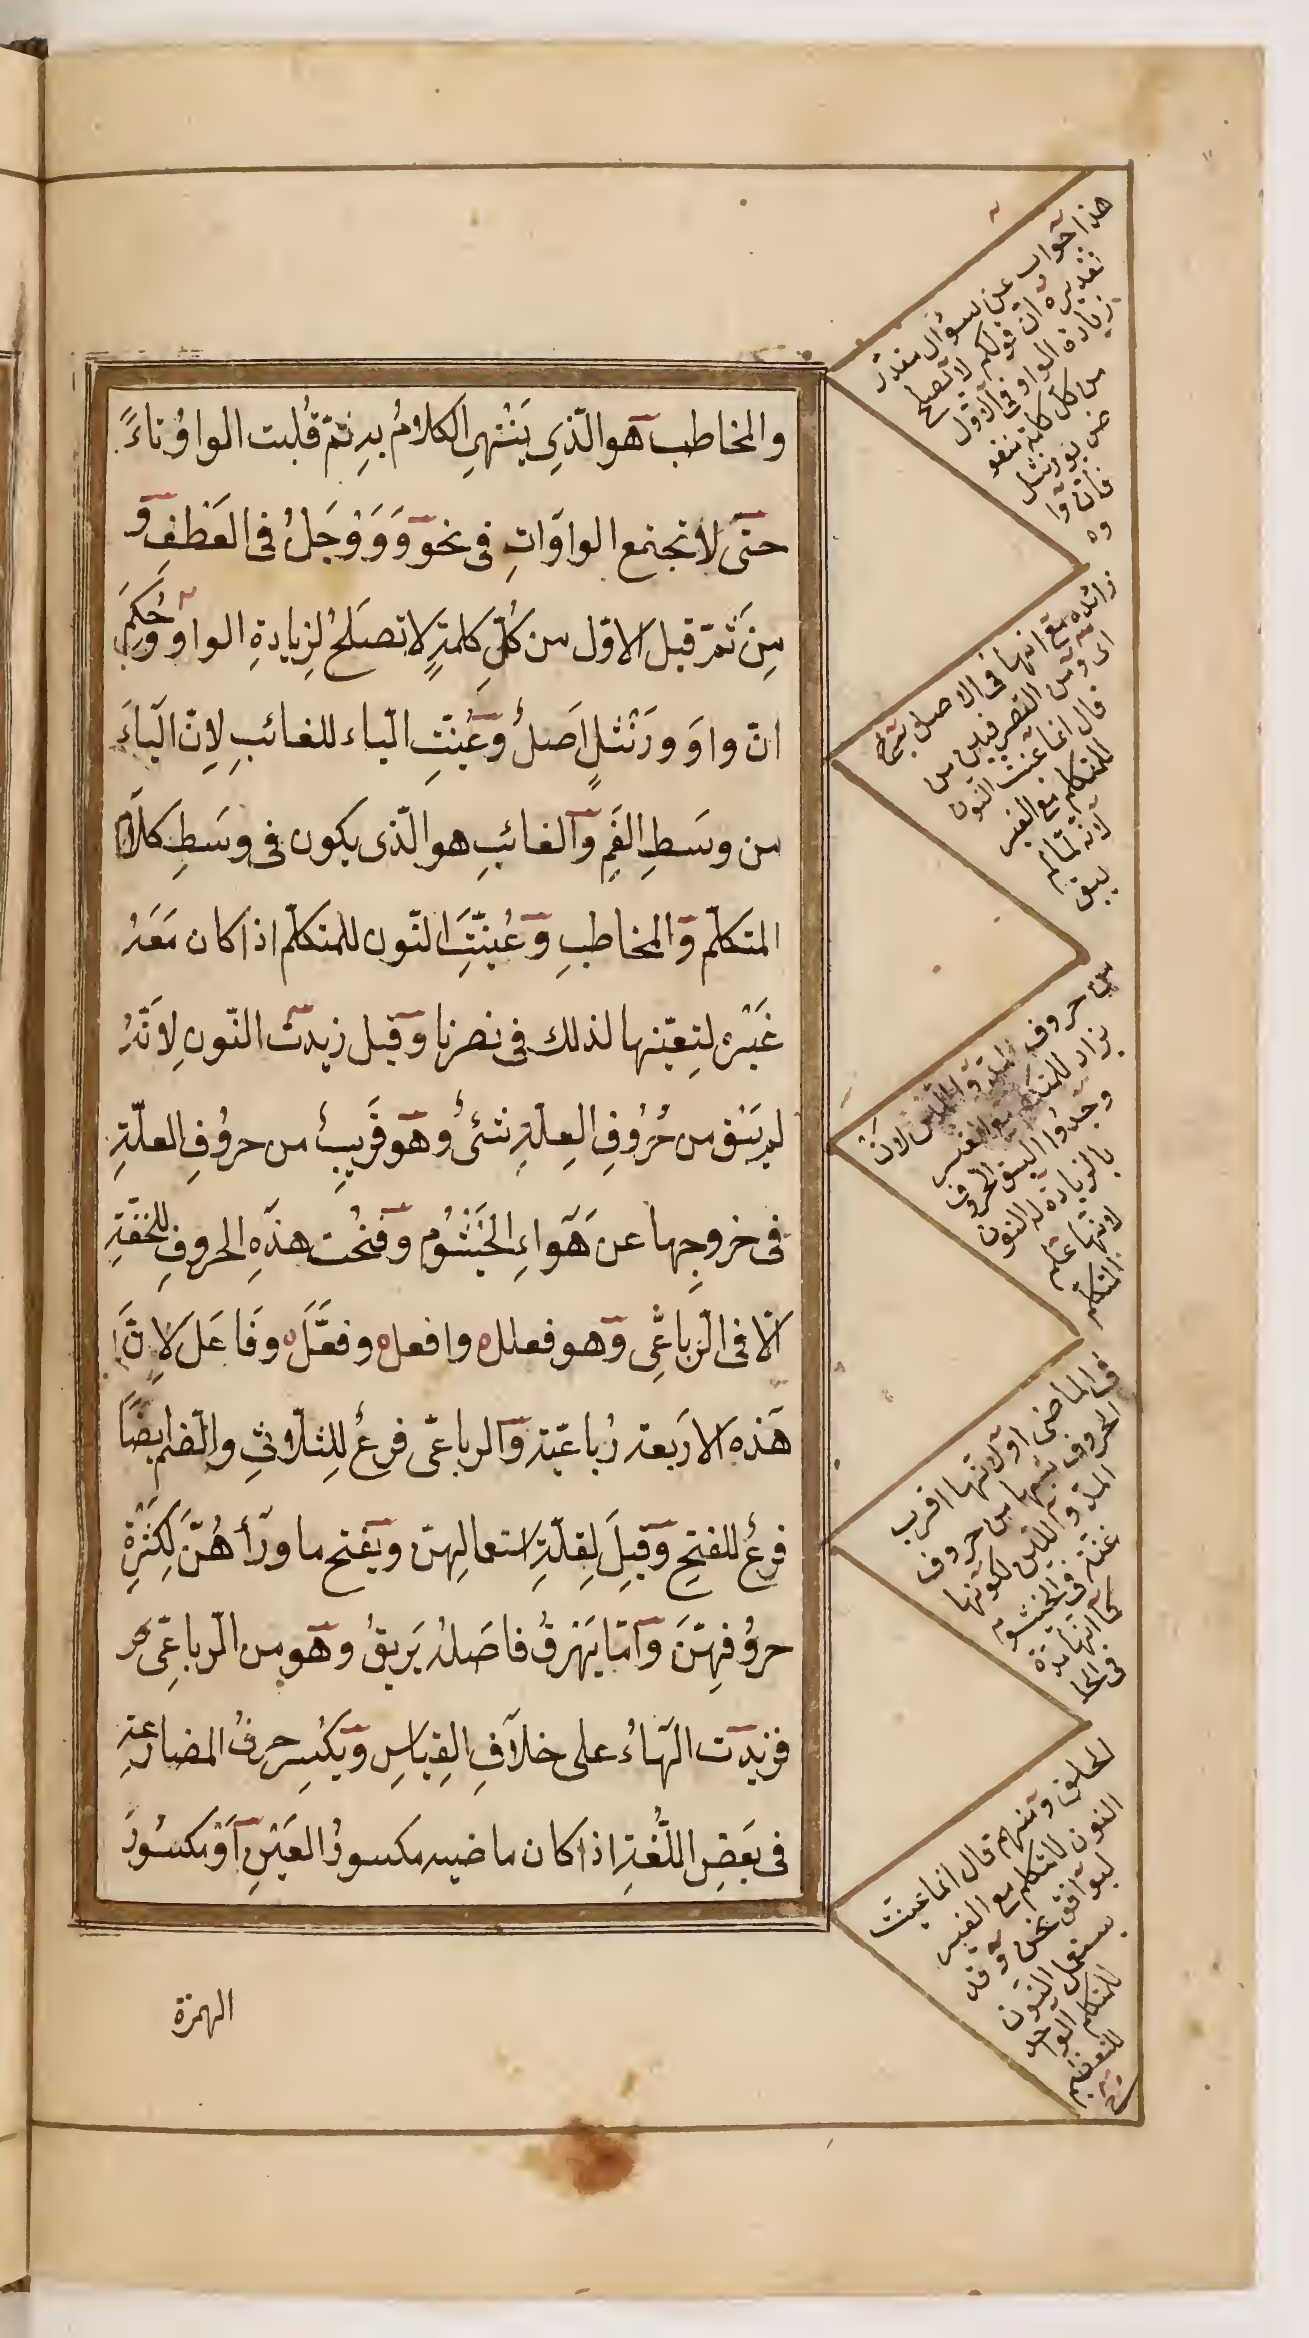 والمخاطب هو الّذِى يَنْتَهِى الكلامُ بهِ ثمّ قُلبت الواوُ تاءً
حتّى لا تجتمع الواوَاتِ فى نحو وَوَوْجَلُ فى العَطْفِ و
مِنْ ثَمّ قيل الاوّل من كُلِّ كلمةٍ لا تصلحُ لِزيادةِ الواو وحُكِمَ
انّ واوَ وَرَنْتلٍ اَصلٌ وعُيّنتِ الياء للغائبِ لِانّ الَياءَ
من وسَطِ الفَمِ والغائبِ هو الّذى يكون فى وسَطِ كلام
المتكلّم والمخاطبِ وعُيّنتِ النّون للمتكلّم اذا كان مَعَهُ
غَيْره لتعيّنها لذلك فى نصرنا وقيل زيدت النّون لِانّهُ
لم يَبْق من حُرُوفِ العِلّةِ شئٌ وهو قَرِيبٌ من حروُفِ العلّةِ
فى خروجِها عن هَواءِ الخَيْشُومِ وفتحُت هذهِ الحروفِ للخفّةِ
الّا فى الرّباعِّى وهو فعلل وافعل وفعَّلَ وفَاعَلَ لِانَّ
هَذه الاربعة رُباعيّة والرباعّى فرعٌ لِلثلاثىِ والضّم ايضًا
فرعٌ للفتحِ وقِيلَ لِقلّةِ استعمالِهنّ ويفتح ما ورآهُنَّ لِكَثرةِ
حروُفِهنَّ وامّا يَهَرِيقُ فاصَلهُ يَريقُ وهو من الرّباعِّى
فزيدت الَهاءُ على خلافِ القِياسِ ويَكْسِر حرفُ المضارعةِ
فى بَعضِ اللُّغةِ اذا كان ماضيه مكسورُ العَيْنِ اَوْ مكسُورَ
الهمزة
هذا جواب عن سؤال مقدّر
تقديره انّ قولكم لا تصلح
زيادة الواو فى الاوّل
من كل كلمة منقو
ض بورنتل
فانّ وا
وه
زائدة مع انها فى الاصل
اى ومن التصريفين من
قال انما عينت النون
للمتكلم مع الغير
لانه لما لم
يبق
من حروف المدّ واللّين لان
يزاد للمتكلم مع الغير
وجدوا اليق الحروف
بالزيادة له النون
لانّها علم
المتكلم
فى الماضى او لانّها اقرب
الحروف شبها من حروف
المد واللين لكونها
غنّة فى الخيشوم
كما انّها مدّة
فى الحا
لحلق ومنهم قال انما عينت
النون للمتكلم مع الغير
ليوافق نحن وقد
يستعمل النون
للمتكلم الواحد
للتعظيم